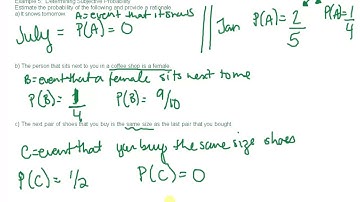 Example 5: Determining Subjective Probability
Estimate the probability of the following and provide a rationale.
a) It snows tomorrow A = event that it snows
July = P(A) = 0 || Jan P(A) = 2/5 P(A) = 1/4
b) The person that sits next to you in a coffee shop is a female.
B = event that a female sits next to me
P(B) = 1/4 P(B) = 9/10
c) The next pair of shoes that you buy is the same size as the last pair that you bought.
C = event that you buy the same size shoes
P(C) = 1/2 P(C) = 0